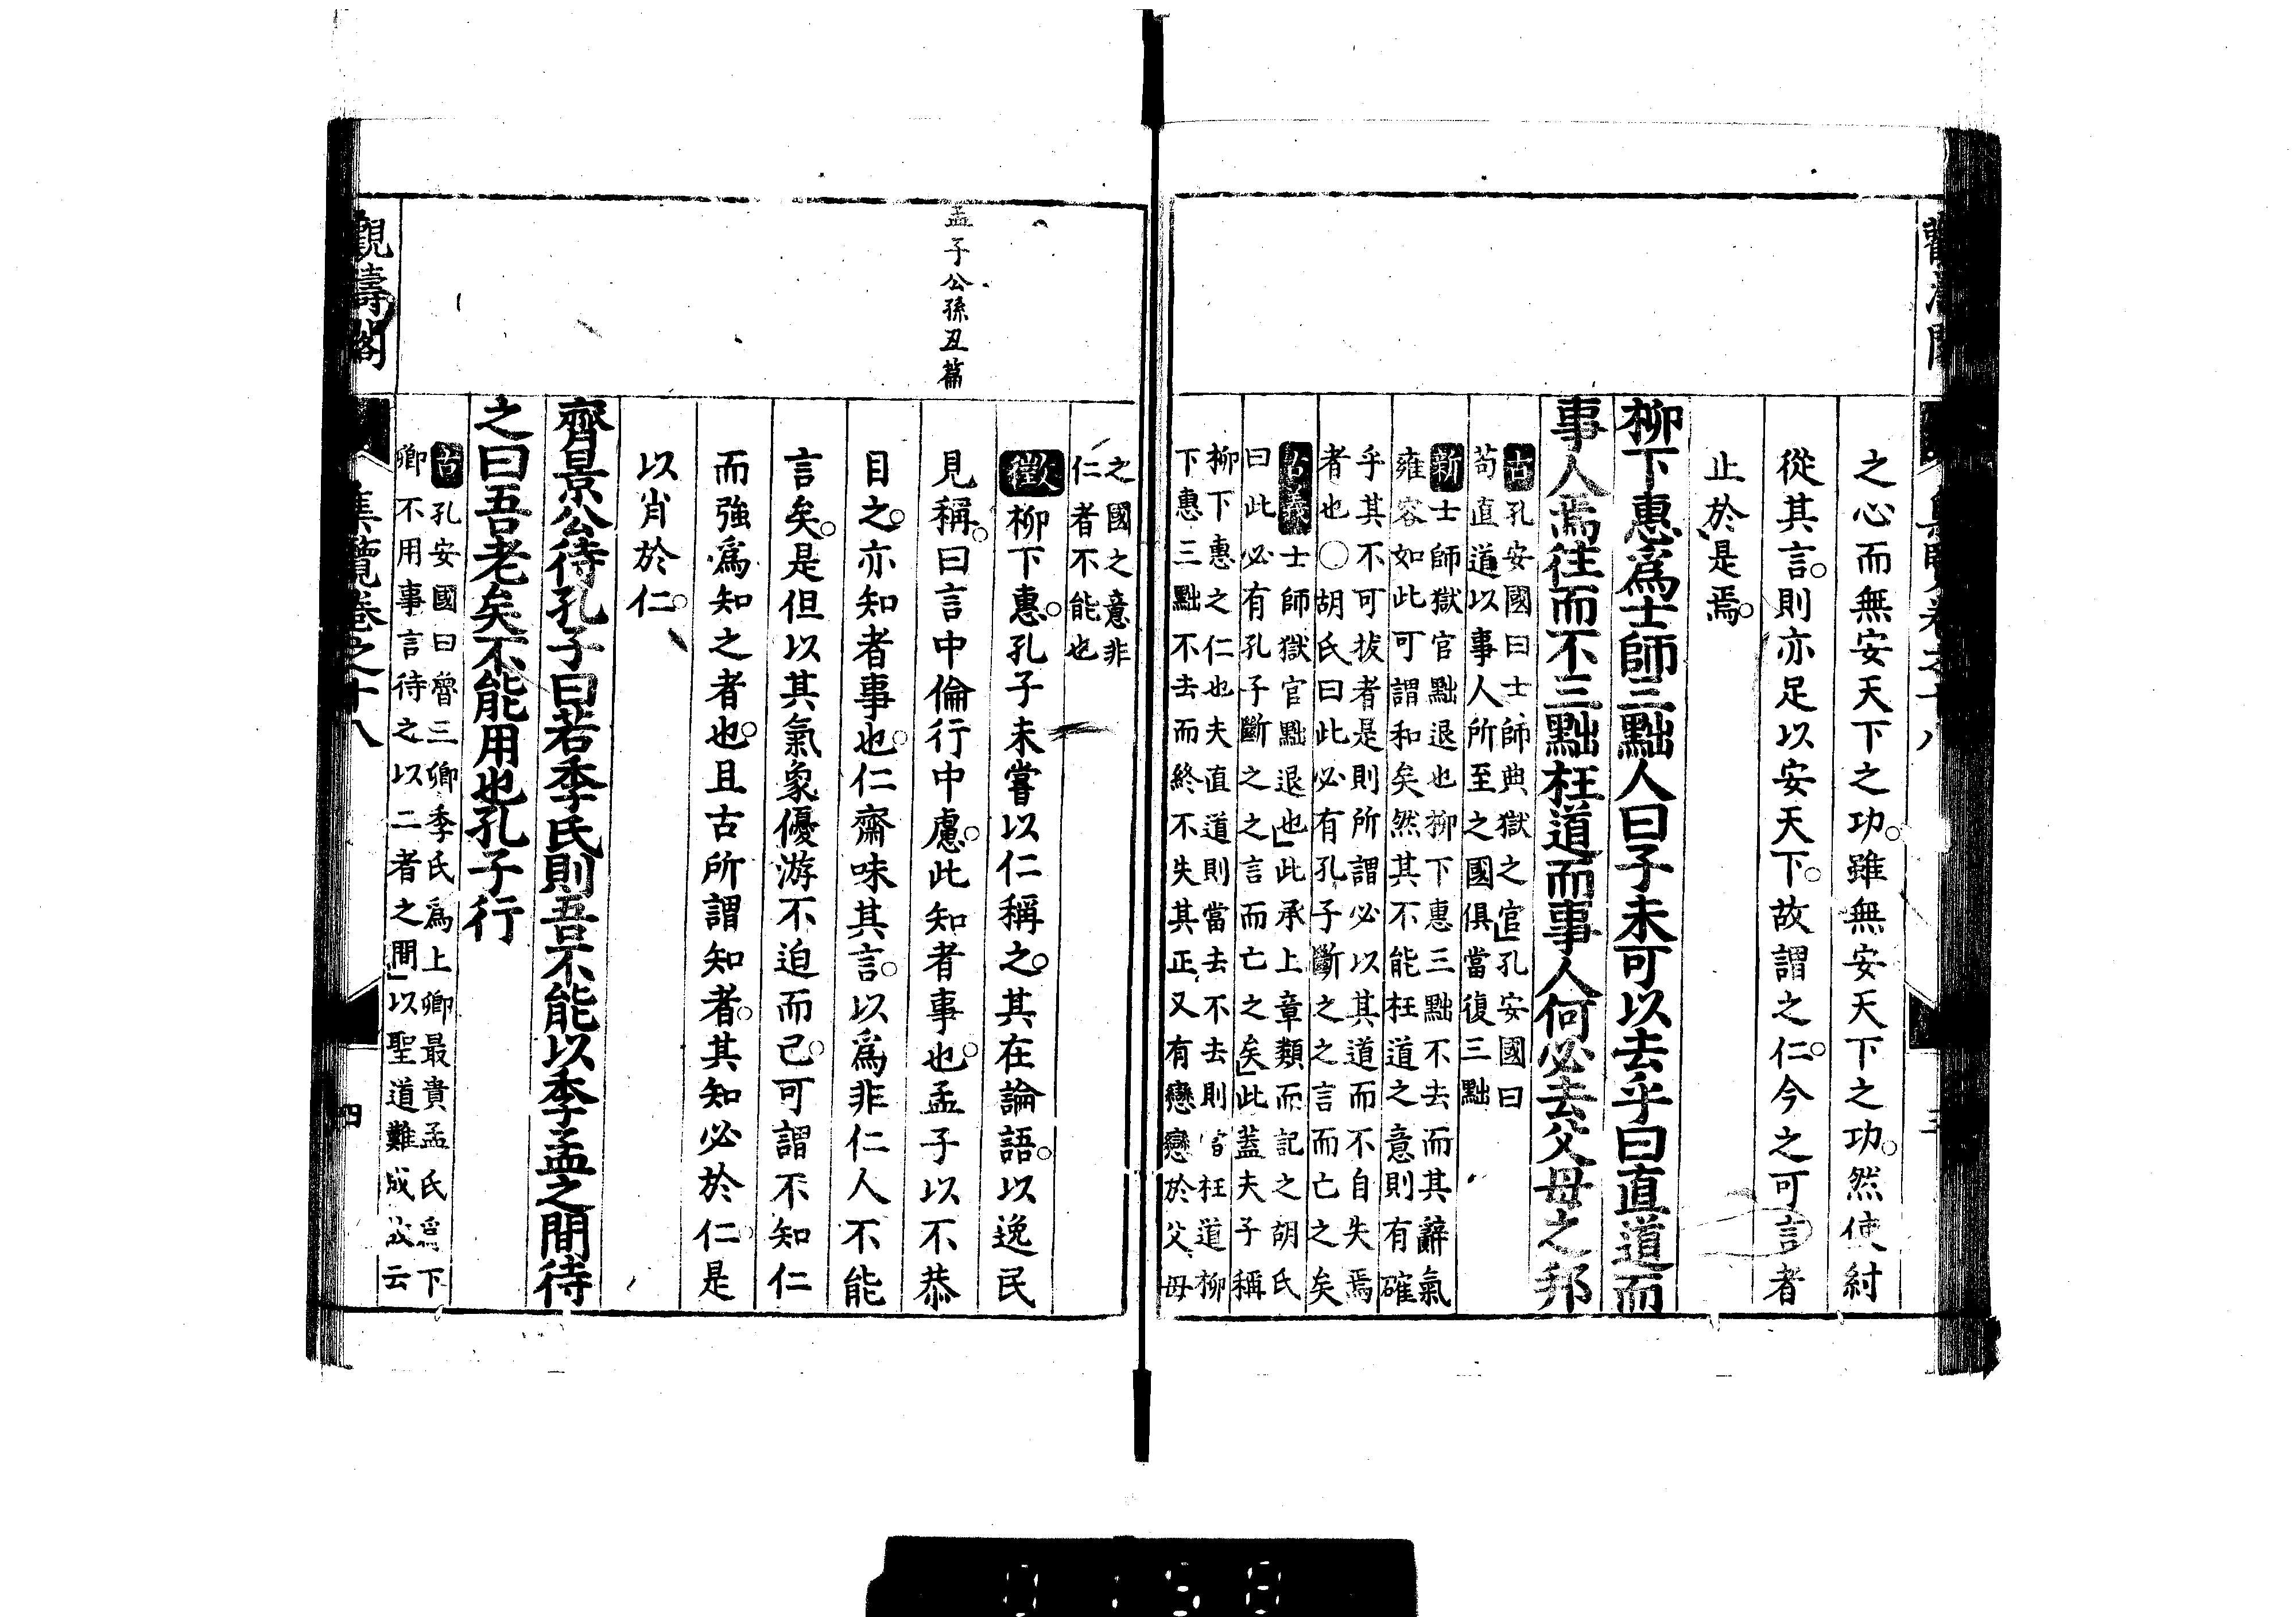 之心而無安天下之功。雖無安天下之功。然使紂
從其言。則亦足以安天下。故謂之仁。今之可言者
止於是焉。
柳下惠爲士師三黜人曰子未可以去乎曰直道而
事人焉往而不三黜枉道而事人何必去父母之邦
古孔安國曰士師典獄之官」孔安國曰
苟直道以事人所至之國俱當復三黜
新士師獄官黜退也柳下惠三黜不去而其辭氣
雍容如此可謂和矣然其不能枉道之意則有確
乎其不可拔者是則所謂必以其道而不自失焉
者也○胡氏曰此必有孔子斷之之言而亡之矣
古義士師獄官黜退也」此承上章類而記之胡氏
曰此必有孔子斷之之言而亡之矣」此蓋夫子稱
柳下惠之仁也夫直道則當去不去則當枉道柳
下惠三黜不去而終不失其正又有戀戀於父母
之國之意非
仁者不能也
徵柳下惠。孔子未嘗以仁稱之。其在論語。以逸民
孟子公孫丑篇
見稱。曰言中倫行中慮。此知者事也。孟子以不恭
目之。亦知者事也。仁齋味其言。以爲非仁人不能
言矣。是但以其氣象優游不迫而已。可謂不知仁
而強爲知之者也。且古所謂知者。其知必於仁。是
以肖於仁。
齊景公待孔子曰若季氏則吾不能以季孟之間待
之曰吾老矣不能用也孔子行
古孔安國曰魯三卿季氏爲上卿最貴孟氏爲下
卿不用事言待之以二者之間」以聖道難成故云
觀濤閣
集覽卷之十八
四